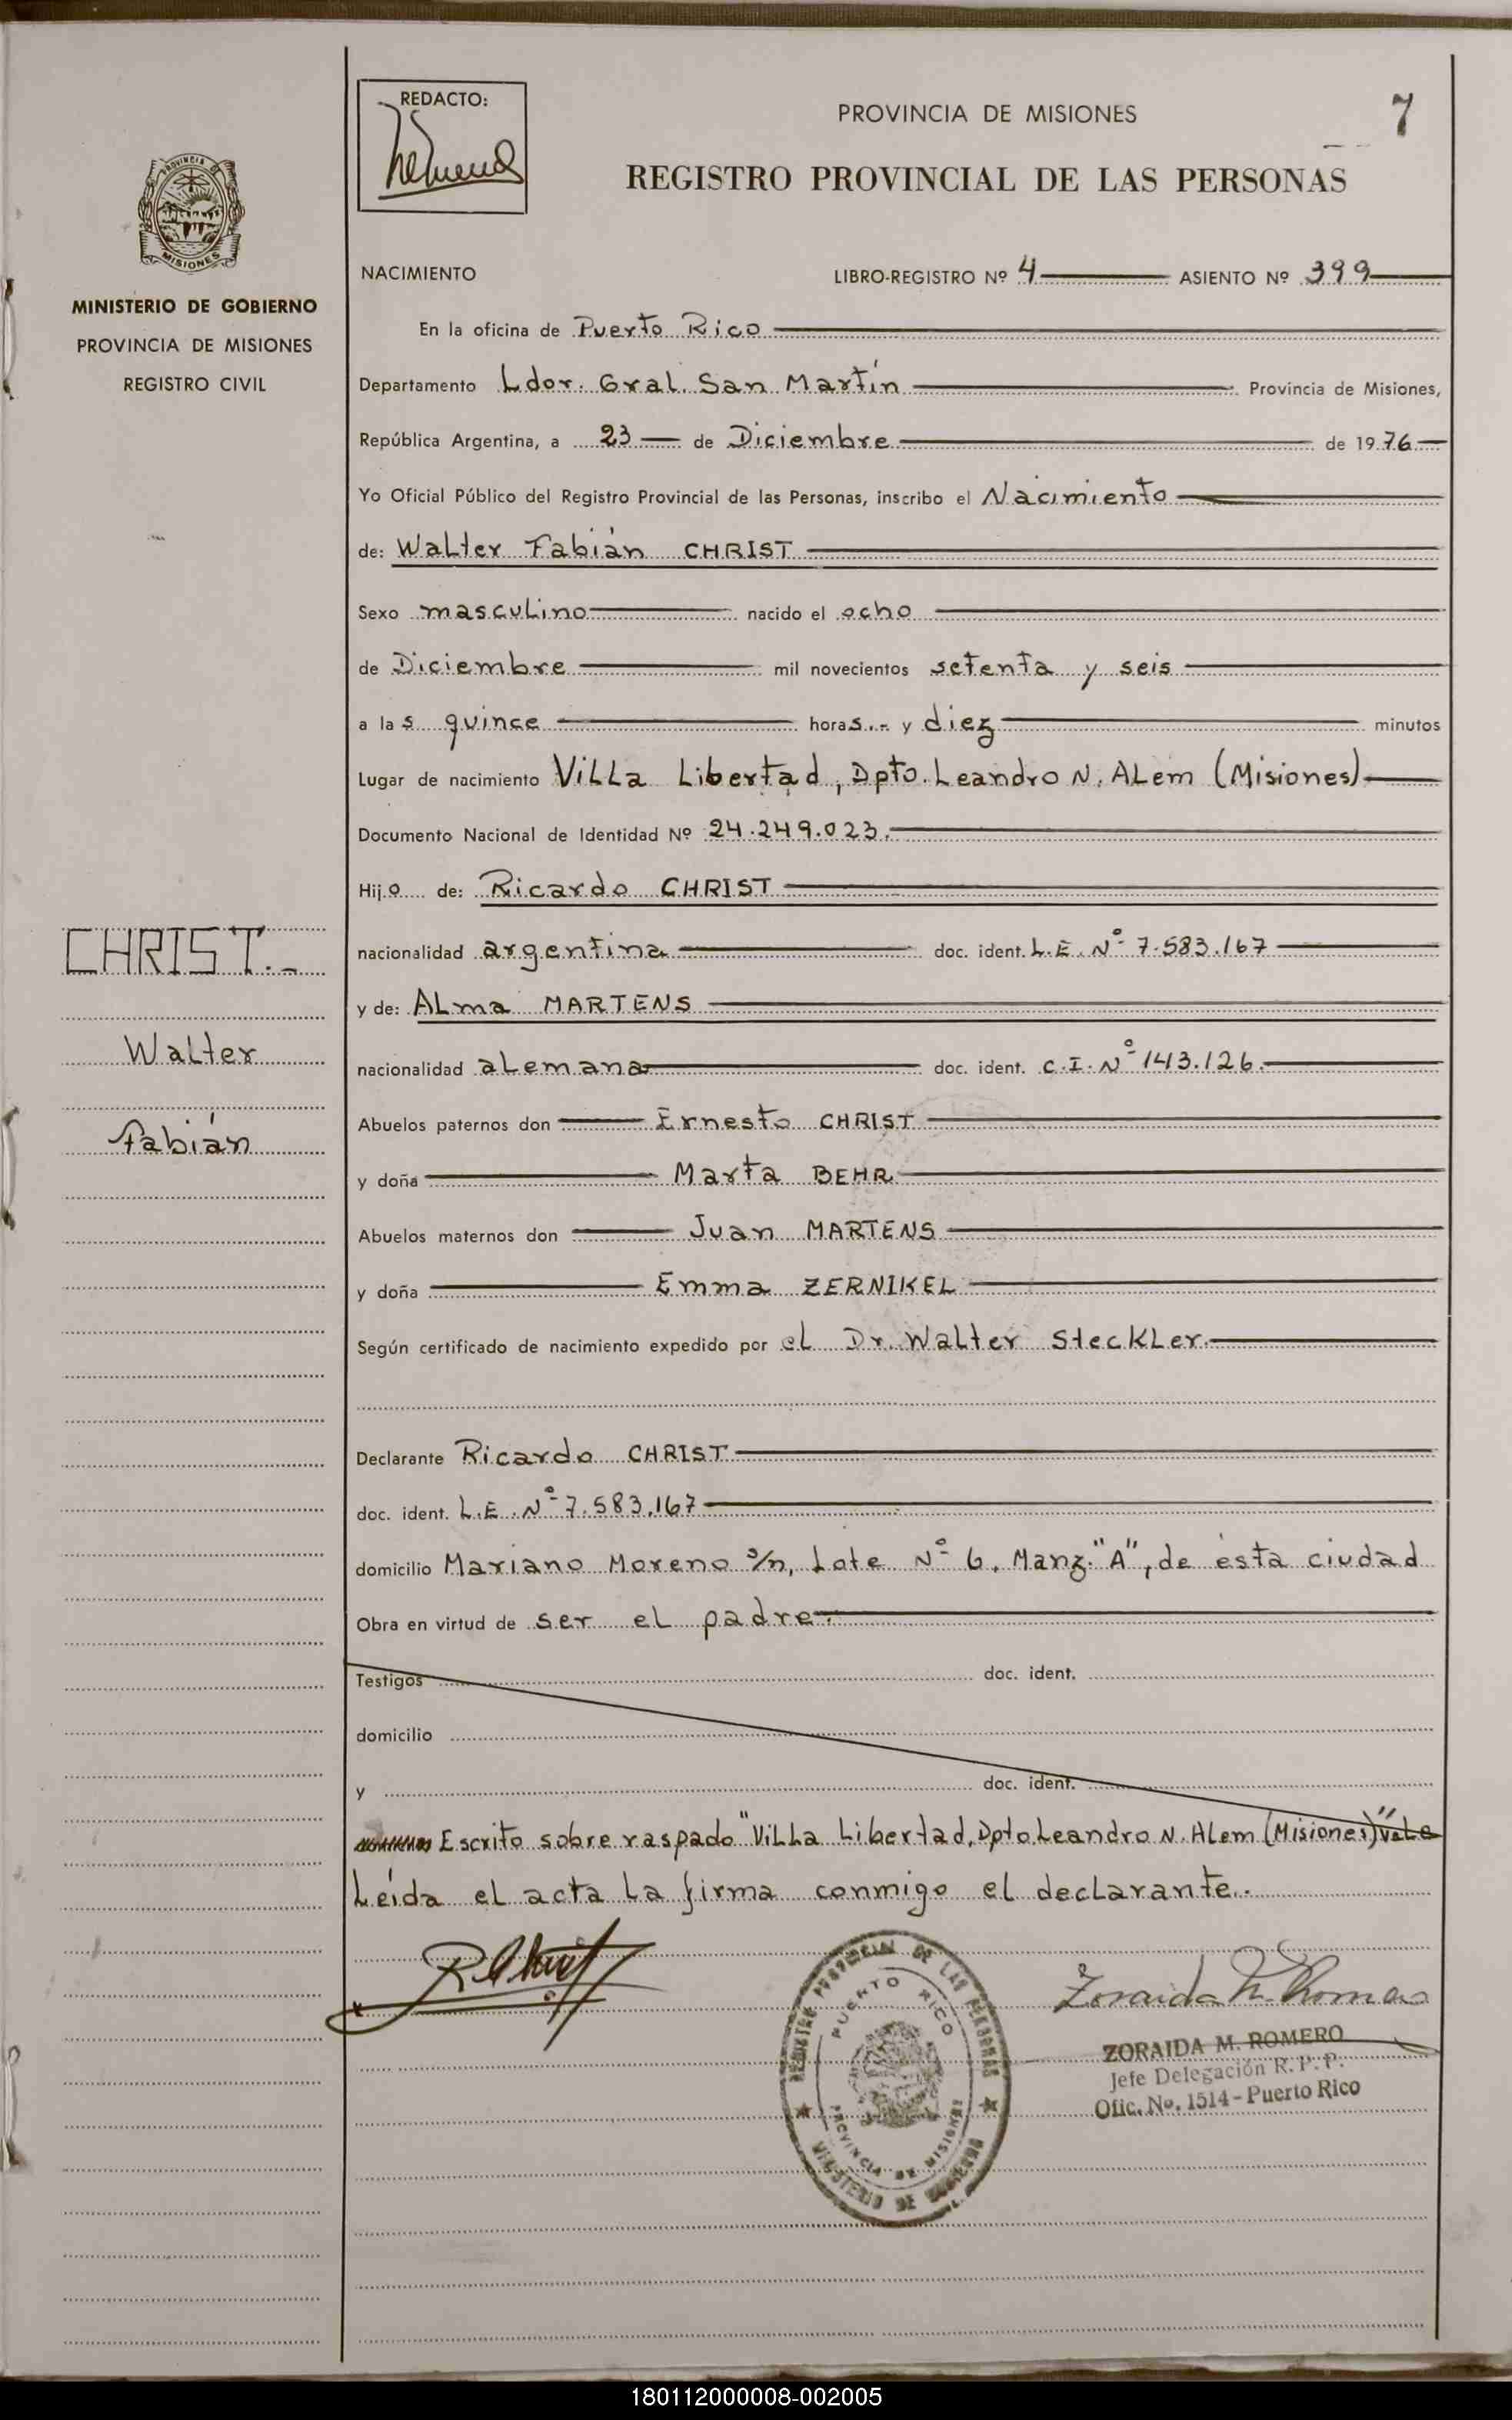 REDACTO:
PROVINCIA DE MISIONES
7
REGISTRO PROVINCIAL DE LAS PERSONAS
PROVINCIA
MISIONES
MINISTERIO DE GOBIERNO
PROVINCIA DE MISIONES
REGISTRO CIVIL
CHRIST.-
Walter
Fabián
NACIMIENTO LIBRO-REGISTRO Nº 4 ASIENTO Nº 399
En la oficina de Puerto Rico
Departamento Ldor. Gral. San Martín Provincia de Misiones,
República Argentina, a 23 de Diciembre de 1976
Yo Oficial Público del Registro Provincial de las Personas, inscribo el Nacimiento
de: Walter Fabián CHRIST
Sexo masculino nacido el ocho
de Diciembre mil novecientos setenta y seis
a las quince horas.- y diez minutos
Lugar de nacimiento Villa Libertad, Dpto. Leandro N. Alem (Misiones)
Documento Nacional de Identidad Nº 24.249.023.
Hijo de: Ricardo CHRIST
nacionalidad argentina doc. ident. L.E. Nº 7.583.167
y de: Alma MARTENS
nacionalidad alemana doc. ident. C.I. Nº 143.126.
Abuelos paternos don Ernesto CHRIST
y doña Marta BEHR
Abuelos maternos don Juan MARTENS
y doña Emma ZERNIKEL
Según certificado de nacimiento expedido por el Dr. Walter Steckler.
Declarante Ricardo CHRIST
doc. ident. L.E. Nº 7.583.167
domicilio Mariano Moreno s/n, Lote Nº 6. Manz. "A", de ésta ciudad
Obra en virtud de ser el padre.
Testigos doc. ident.
domicilio
y doc. ident.
Escrito sobre raspado "Villa Libertad, Dpto Leandro N. Alem (Misiones)" Vale
Leída el acta la firma conmigo el declarante.
R Christ
Zoraida M. Romero
REGISTRO PROVINCIAL DE LAS PERSONAS
PUERTO RICO
PROVINCIA DE MISIONES
MINISTERIO DE GOBIERNO
ZORAIDA M. ROMERO
Jefe Delegación R. P. P.
Ofic. No. 1514 - Puerto Rico
180112000008-002005